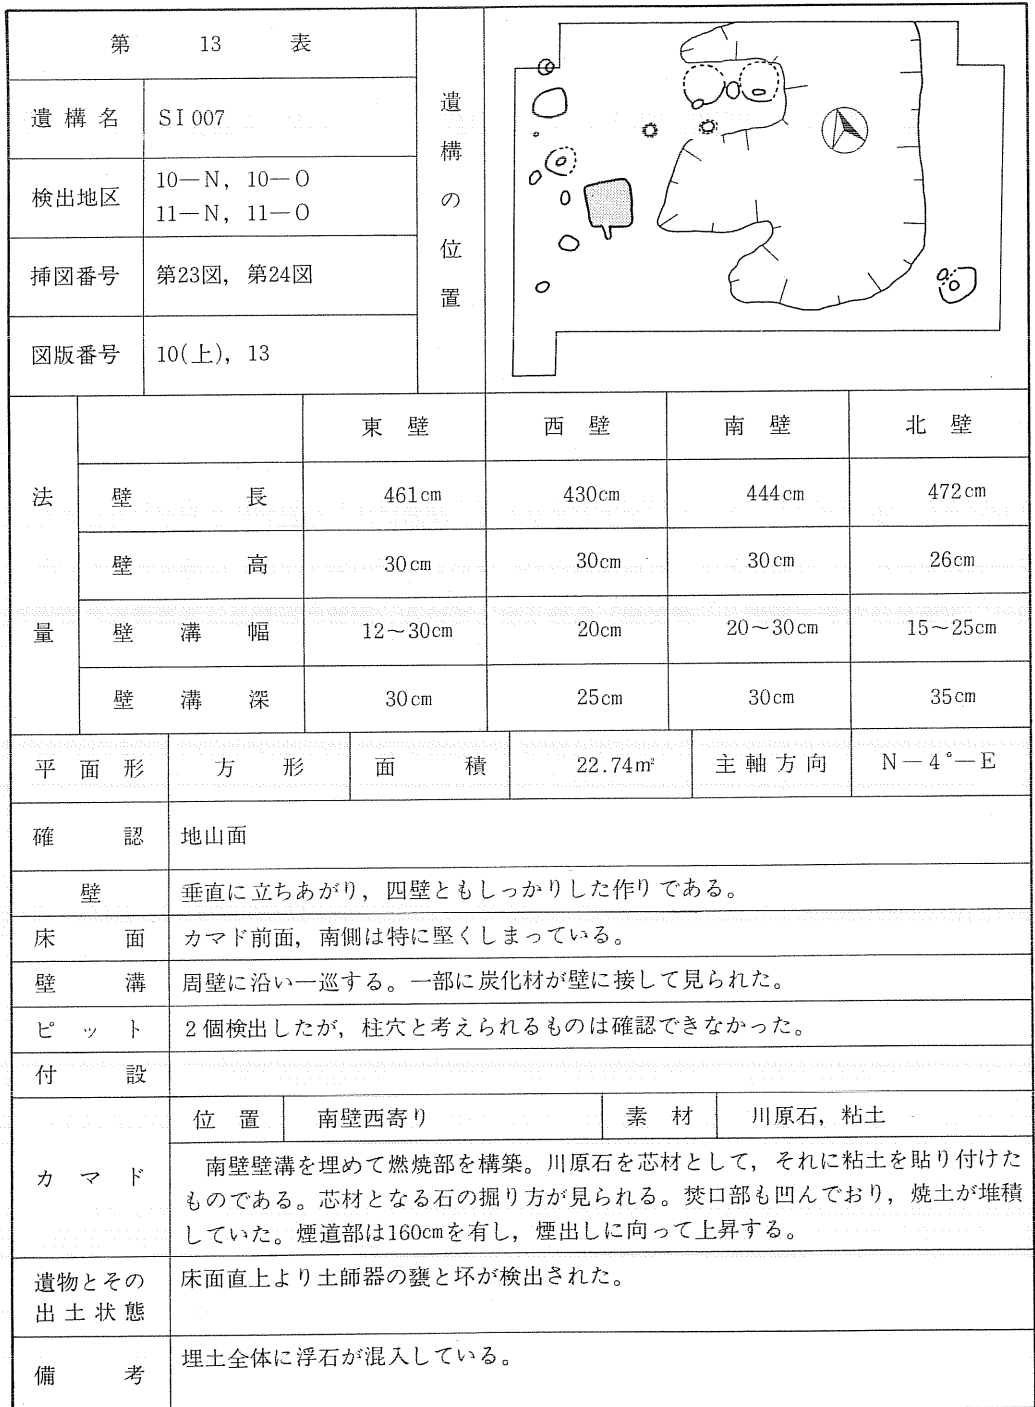 第 13 表
遺構名 SI007
検出地区 10—N，10—O
11—N，11—O
挿図番号 第23図，第24図
図版番号 10(上)，13
遺構の位置
法量
東壁 西壁 南壁 北壁
壁長 461cm 430cm 444cm 472cm
壁高 30cm 30cm 30cm 26cm
壁溝幅 12～30cm 20cm 20～30cm 15～25cm
壁溝深 30cm 25cm 30cm 35cm
平面形 方形 面積 22.74㎡ 主軸方向 N－4°－E
確認 地山面
壁 垂直に立ちあがり，四壁ともしっかりした作りである。
床面 カマド前面，南側は特に堅くしまっている。
壁溝 周壁に沿い一巡する。一部に炭化材が壁に接して見られた。
ピット 2個検出したが，柱穴と考えられるものは確認できなかった。
付設
カマド
位置 南壁西寄り 素材 川原石，粘土
南壁壁溝を埋めて燃焼部を構築。川原石を芯材として，それに粘土を貼り付けた
ものである。芯材となる石の掘り方が見られる。焚口部も凹んでおり，焼土が堆積
していた。煙道部は160㎝を有し，煙出しに向って上昇する。
遺物とその
出土状態
床面直上より土師器の甕と坏が検出された。
備考 埋土全体に浮石が混入している。